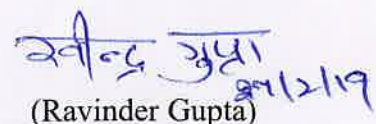 रवीन्द्र गुप्ता
(Ravinder Gupta)